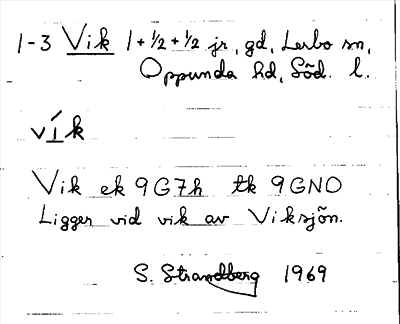 1-3 Vik 1+½+½ jr, gd, Lerbo sn,
Oppunda hd, Söd. l.
vík
Vik ek 9G7h tk 9GNO
Ligger vid vik av Viksjön.
S. Strandberg 1969